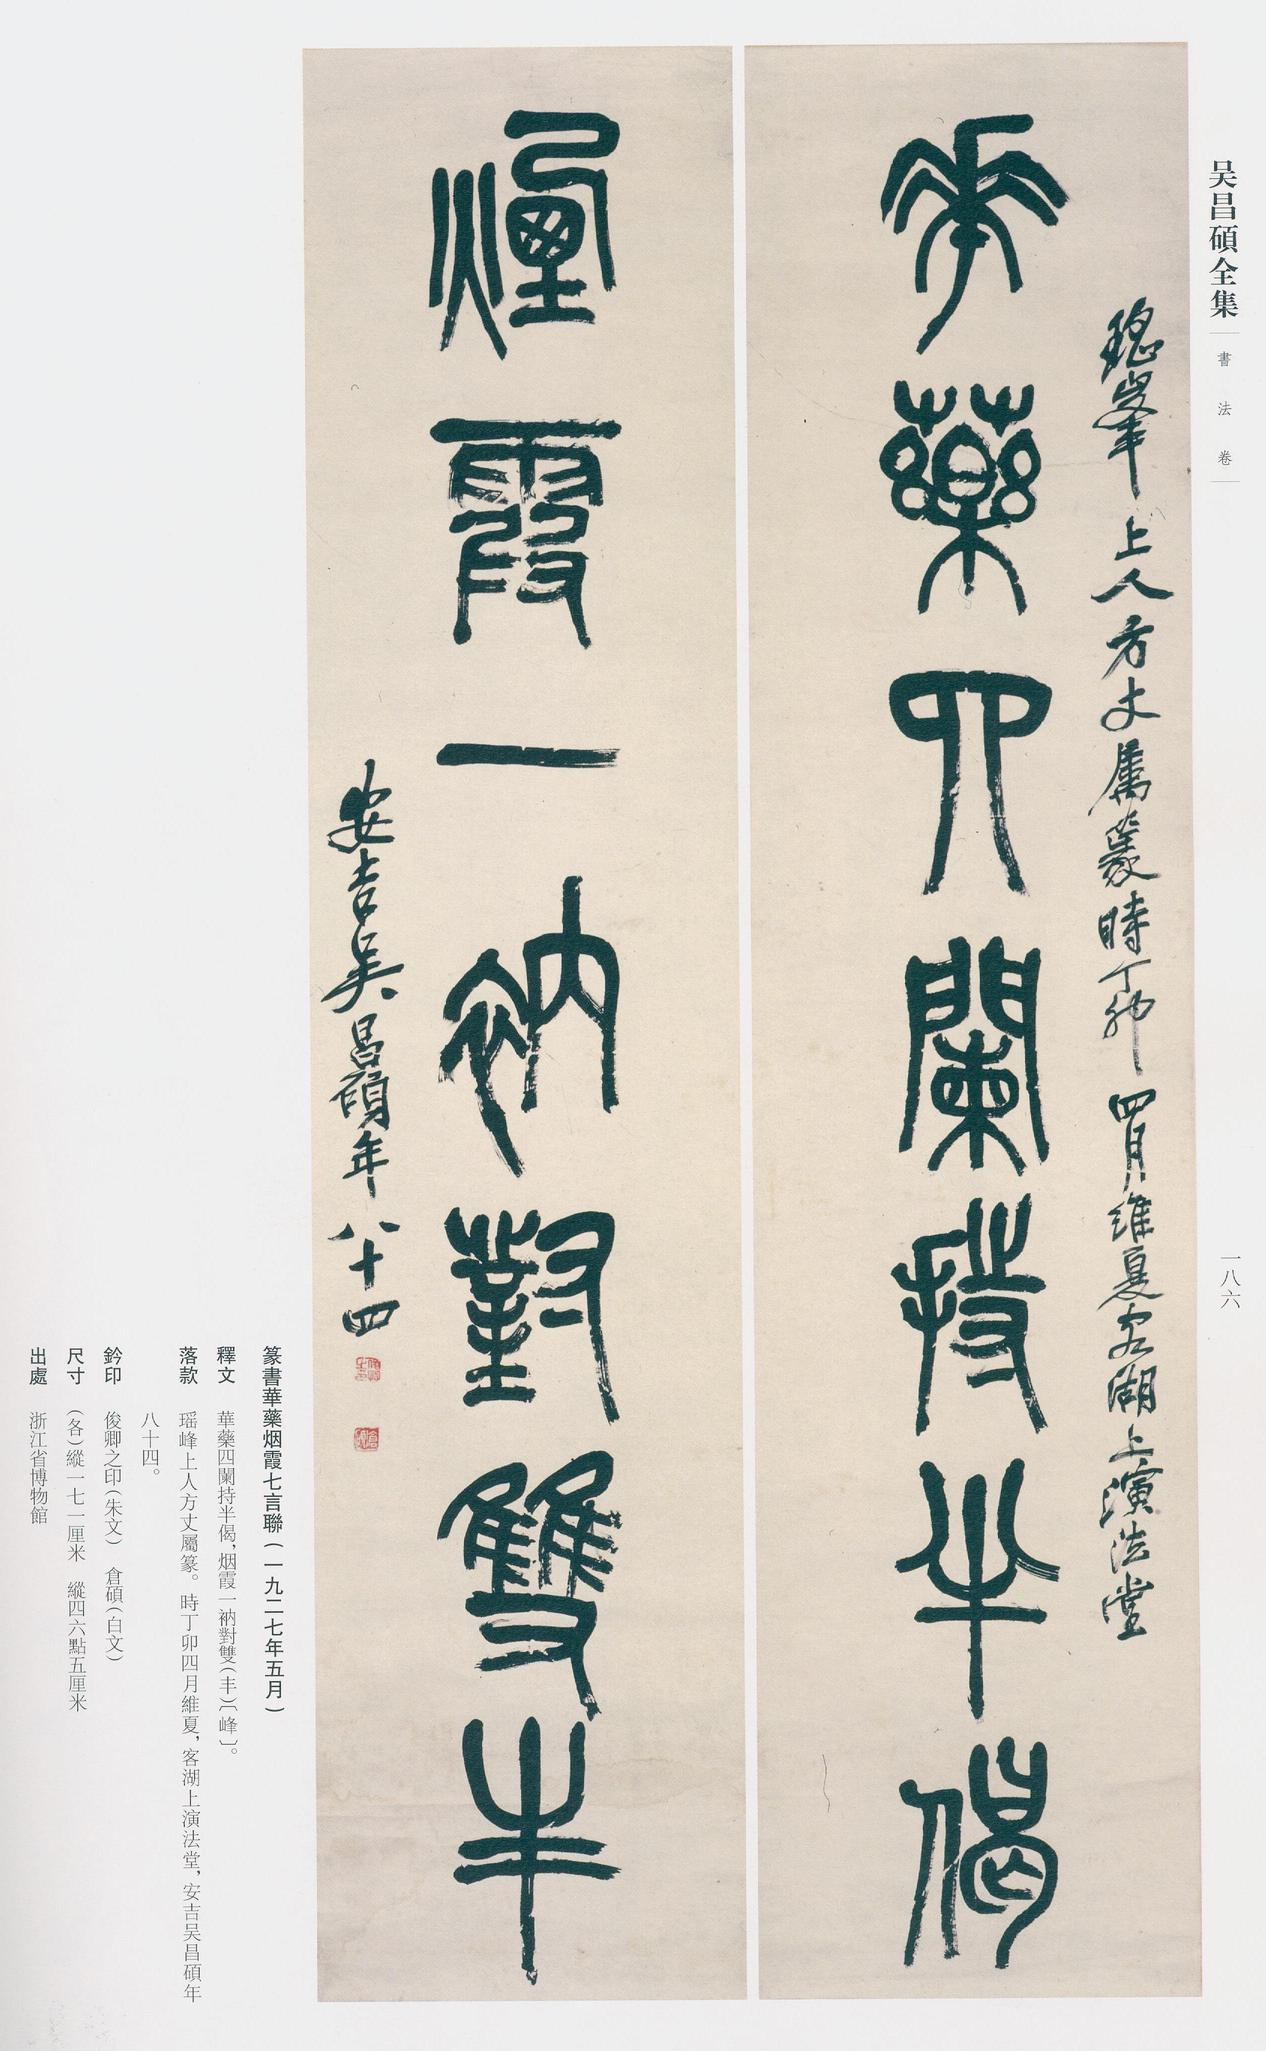 吴昌碩全集
書法卷
一八六
瑤峯上人方丈属篆時丁卯四月維夏客湖上演法堂
華藥四闌持半偈
煙霞一衲對雙丰
安吉吴昌碩年八十四
篆書華藥烟霞七言聯(一九二七年五月)
釋文 華藥四闌持半偈,烟霞一衲對雙(丰)〔峰〕。
落款 瑶峰上人方丈屬篆。時丁卯四月維夏,客湖上演法堂,安吉吴昌碩年
八十四。
鈐印 俊卿之印(朱文) 倉碩(白文)
尺寸 (各)縱一七一厘米 縱四六點五厘米
出處 浙江省博物館